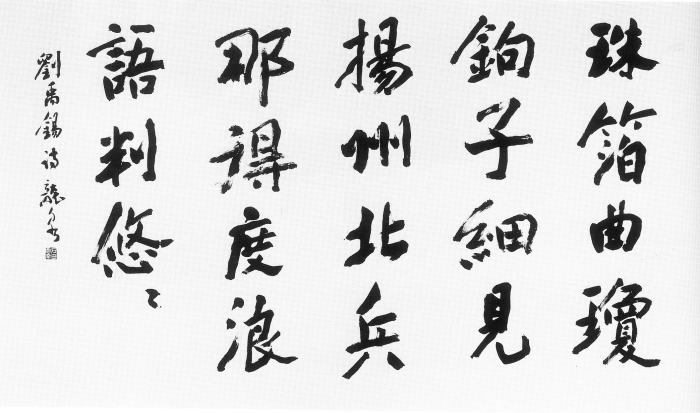 珠箔曲瓊
鉤子細見
揚州北兵
那得度浪
語判悠々
劉禹錫詩